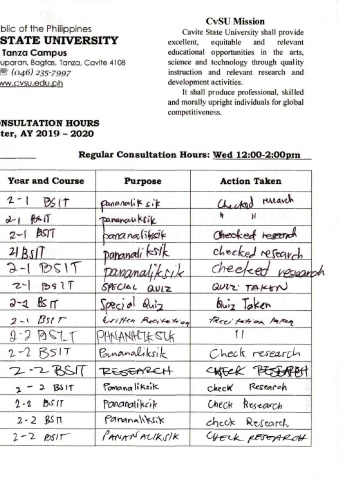 blic of the Philippines
STATE UNIVERSITY
Tanza Campus
uparan, Bagtas, Tanza, Cavite 4108
☏ (046) 235-7997
ww.cvsu.edu.ph
CvSU Mission
Cavite State University shall provide
excellent, equitable and relevant
educational opportunities in the arts,
science and technology through quality
instruction and relevant research and
development activities.
It shall produce professional, skilled
and morally upright individuals for global
competitiveness.
ONSULTATION HOURS
ter, AY 2019 – 2020
Regular Consultation Hours: Wed 12:00-2:00pm
Year and Course Purpose Action Taken
2-1 BSIT pananaliksik Checked research
2-1 BSIT pananaliksik " "
2-1 BSIT pananaliksik Checked research
21 BSIT pananaliksik checked research
2-1 BSIT pananaliksik checked research
2-1 BSIT SPECIAL QUIZ QUIZ TAKEN
2-2 BSIT Special Quiz Quiz Taken
2-1 BSIT Written Recitation Recitation taken
2-2 BSIT PANANALIKSIK "
2-2 BSIT Pananaliksik Check research
2-2 BSIT RESEARCH CHECK RESEARCH
2-2 BSIT Pananaliksik check Research
2-2 BSIT Pananaliksik Check Research
2-2 BSIT Pananaliksik check Research
2-2 BSIT PANANALIKSIK CHECK RESEARCH